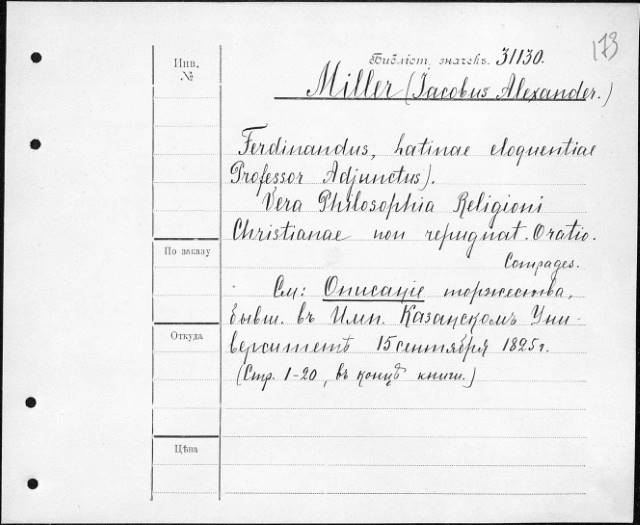 173
Инв.
№
Библіот. значекъ. 31130.
Miller (Jacobus Alexander.)
Ferdinandus, Latinae eloquentiae
Professor Adjunctus).
Vera Philosophia Religioni
Christianae non repugnat. Oratio.
Compages.
По заказу
См: Описаніе торжества,
бывш. въ Имп. Казанскомъ Уни-
Откуда
верситетѣ 15 сентября 1825 г.
(Стр. 1-20, въ концѣ книги.)
Цѣна